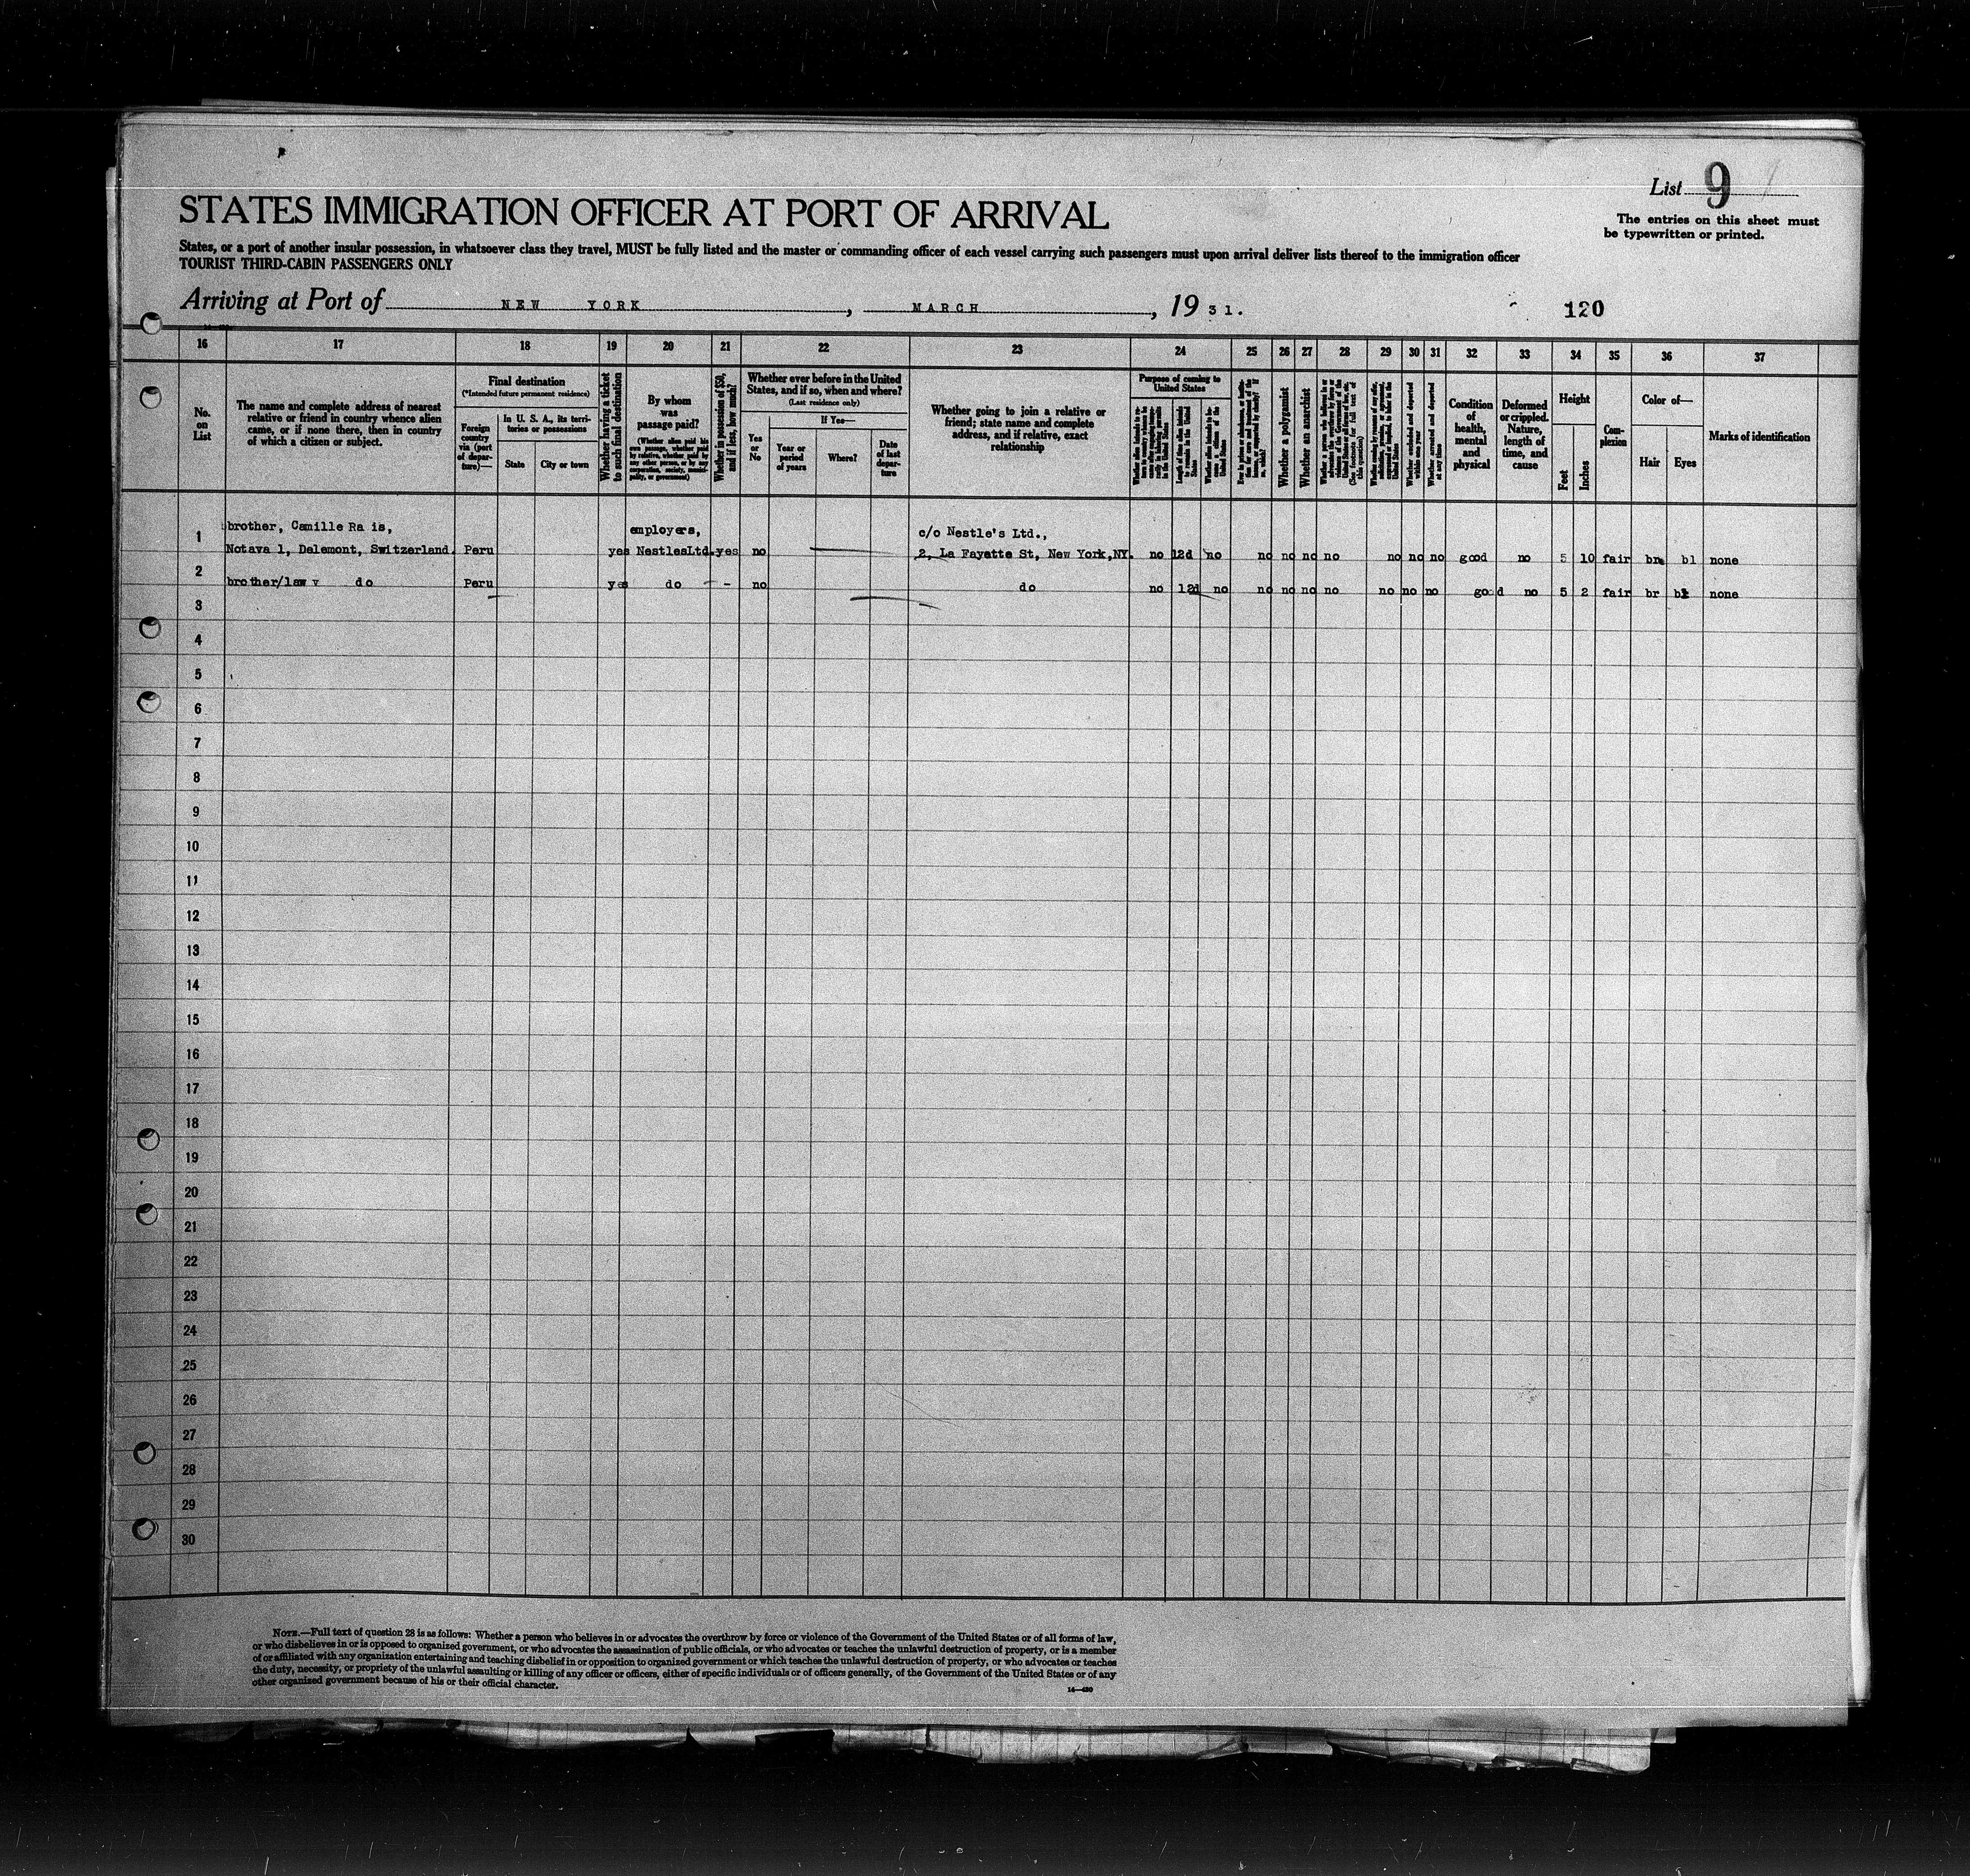 List 9
The entries on this sheet must
be typewritten or printed.
STATES IMMIGRATION OFFICER AT PORT OF ARRIVAL
States, or a port of another insular possession, in whatsoever class they travel, MUST be fully listed and the master or commanding officer of each vessel carrying such passengers must upon arrival deliver lists thereof to the immigration officer
TOURIST THIRD-CABIN PASSENGERS ONLY
Arriving at Port of NEW YORK, MARCH, 19 31.
120
16 17 18 19 20 21 22 23 24 25 26 27 28 29 30 31 32 33 34 35 36 37
No. on List
The name and complete address of nearest
relative or friend in country whence alien
came, or if none there, then in country
of which a citizen or subject.
Final destination
(*Intended future permanent residence)
Foreign country via (port of departure)—
In U. S. A., its territories or possessions
State
City or town
Whether having a ticket to such final destination
By whom was passage paid?
(Whether alien paid his own passage, whether paid by relative, whether paid by any other person, or by any corporation, society, municipality, or government)
Whether in possession of $50, and if less, how much?
Whether ever before in the United
States, and if so, when and where?
(Last residence only)
Yes or No
If Yes—
Year or period of years
Where?
Date of last departure
Whether going to join a relative or
friend; state name and complete
address, and if relative, exact
relationship
Purpose of coming to
United States
Whether a polygamist
Whether an anarchist
Whether arrested and deported at any time
Condition of health, mental and physical
Deformed or crippled. Nature, length of time, and cause
Height
Feet
Inches
Complexion
Color of—
Hair
Eyes
Marks of identification
brother, Camille Ra is, employers, c/o Nestle's Ltd.,
1 Notava 1, Delemont, Switzerland. Peru yes NestlesLtd. yes no 2, La Fayette St, New York,NY. no 12d no no no no no no no no good no 5 10 fair brn bl none
2 brother/law v do Peru yes do - no do no 12d no no no no no no no no good no 5 2 fair br bl none
3
4
5
6
7
8
9
10
11
12
13
14
15
16
17
18
19
20
21
22
23
24
25
26
27
28
29
30
NOTE.—Full text of question 28 is as follows: Whether a person who believes in or advocates the overthrow by force or violence of the Government of the United States or of all forms of law,
or who disbelieves in or is opposed to organized government, or who advocates the assassination of public officials, or who advocates or teaches the unlawful destruction of property, or is a member
of or affiliated with any organization entertaining and teaching disbelief in or opposition to organized government or which teaches the unlawful destruction of property, or who advocates or teaches
the duty, necessity, or propriety of the unlawful assaulting or killing of any officer or officers, either of specific individuals or of officers generally, of the Government of the United States or of any
other organized government because of his or their official character.
14—420